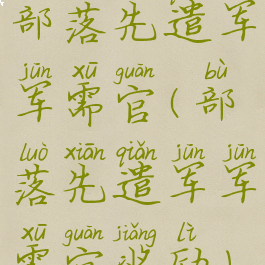 部落先遣军
jūn xū guān bù
军需官(部
luò xiān qiǎn jūn jūn
落先遣军军
xū guān jiǎng lì
需官奖励)